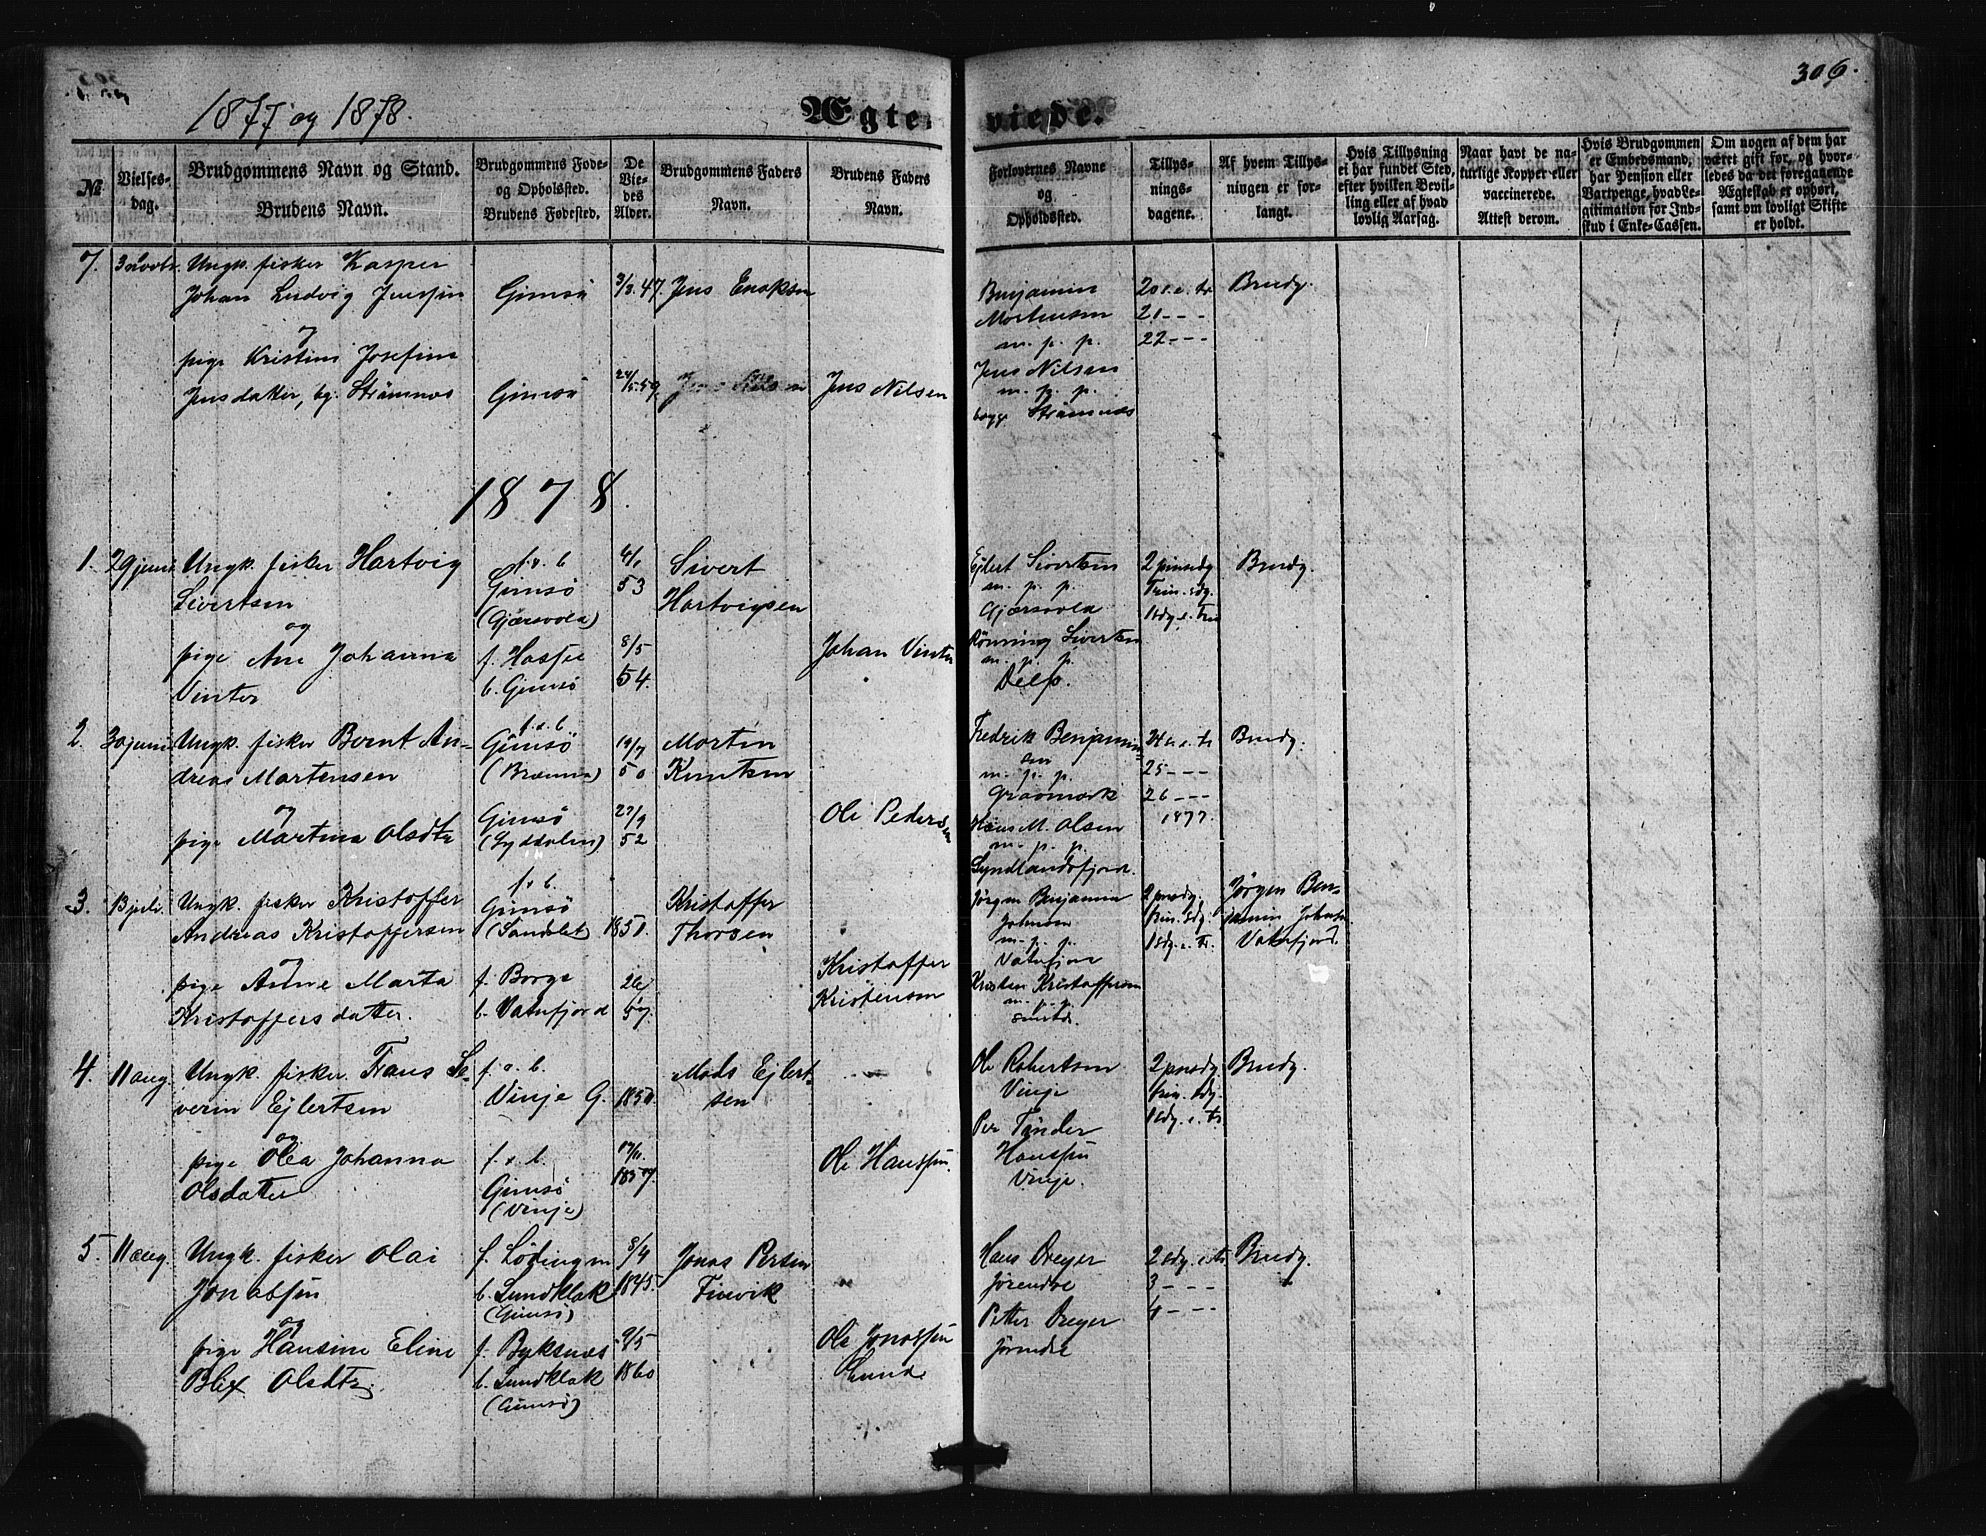 306.
1877 og 1878.
Ægte- viede.
№
Vielses-
dag.
Brudgommens Navn og Stand.
Brudens Navn.
Brudgommens Føde-
og Opholsted.
Brudens Fødested.
De
Vie-
des
Alder.
Brudgommens Faders
Navn.
Brudens Faders
Navn.
Forlovernes Navne
og
Opholdssted.
Tillys-
nings-
dagene.
Af hvem Tillys-
ningen er for-
langt.
Hvis Tillysning
ei har fundet Sted,
efter hvilken Bevil-
ling eller af hvad
lovlig Aarsag.
Naar havt de na-
turlige Kopper eller
vaccinerede.
Attest derom.
Hvis Brudgommen
er Embedsmand,
har Pension eller
Vartpenge, hvad Le-
gitimation for Ind-
skud i Enke-Cassen.
Om nogen af dem har
været gift før, og hvor-
ledes da det foregaaende
Ægteskab er ophørt,
samt om lovligt Skifte
er holdt.
7.
Ungk. fisker Kasper
Johan Ludvig Jenssen
og
pige Kristine Josefine
Jensdatter, bg. Strømnes
Gimsø
Gimsø
3/3. 47.
24/5 59.
Jens Enoksen
Jens Nilsen
Benjamin
Mortensen
m. p. p.
Jens Nilsen
m. p. p.
begge Strømnes
20 s. e. tr
21 - - -
22 - - -
Brudg.
1878
1.
29 juni
Ungk. fisker Hartvig
Sivertsen
og
pige Ane Johanna
Vinter
f. o. b
Gimsø
(Gjærsvola)
f. Hassel
b. Gimsø
4/1
53
8/5
54.
Sivert
Hartvigsen
Johan Vinter
Ejlert Sivertsen
m. p. p.
Gjærsvola
Rønning Sivertsen
m. p. p.
Delp.
2 pinsedg
Trin. sdg.
1 sdg. e. Tri
Brudg.
2.
30 juni
Ungk. fisker Bernt An-
dreas Martensen
og
pige Martina Olsdtr
f. o. b
Gimsø
(Brenna)
Gimsø
(Syddalen)
19/7
50
27/9
52
Mortin
Knutsen
Ole Pedersen
Fredrik Benjamin-
sen
m. p. p.
Gravmark
Hans M. Olsen
m. p. p.
Syndlandsfjord.
24 s. e. tr
25 - - -
26 - - -
1877.
Brudg.
3.
13 juli.
Ungk. fisker Kristoffer
Andreas Kristoffersen
og
pige Anne Marta
Kristoffersdatter.
f. o. b.
Gimsø
(Sandslet)
f. Borge
b. Vatnfjord
1850.
57.
Kristoffer
Thorsen
Kristoffer
Kristensen
Jørgen Benjamin
Johnsen
m. p. p.
Vatnfjor
Kristen Kristoffersen
m. p. p.
2 pinsedg.
trin. sdg.
1 sdg. e. tr.
Jørgen Ben-
jamin Johnsen
Vatnfjord.
4.
11 aug.
Ungk. fisker Frans Se-
verin Ejlertsen
og
pige Olea Johanna
Olsdatter
f. o. b.
Vinje G.
f. o. b.
Gimsø
(Vinje)
1850.
1857.
Mads Ejlert-
sen
Ole Hanssen.
Ole Robertsen
Vinje
Per Tønder
Hanssen
Vinje.
2 pinsedg.
trin. sdg.
1 sdg. e. tr
Brudg.
5.
11 aug.
Ungk. fisker Olai
Jonassen
og
pige Hansine Eline
Blix Olsdtr.
f. Lødingen
b. Sundklak
(Gimsø)
f. Byksnes
b. Sundklak
(Gimsø)
8/4
1845.
9/5
1860
Jonas Persen
Finvik
Ole Jonassen
Lund
Hans Dreyer
Jørendre
Petter Dreyer
Jørendre
2 sdg. e. tr
3 - - -
4 - - -
Brudg.